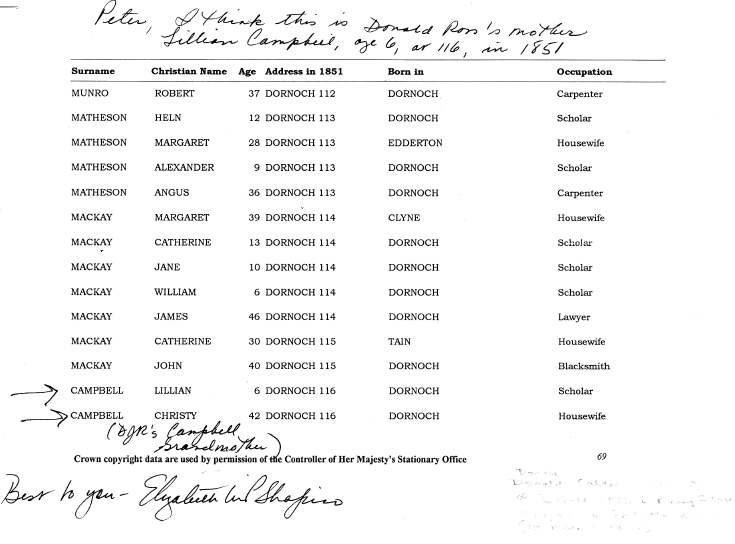 Peter, I think this is Donald Ross's mother
Lillian Campbell, age 6, at 116, in 1851
Surname Christian Name Age Address in 1851 Born in Occupation
MUNRO ROBERT 37 DORNOCH 112 DORNOCH Carpenter
MATHESON HELN 12 DORNOCH 113 DORNOCH Scholar
MATHESON MARGARET 28 DORNOCH 113 EDDERTON Housewife
MATHESON ALEXANDER 9 DORNOCH 113 DORNOCH Scholar
MATHESON ANGUS 36 DORNOCH 113 DORNOCH Carpenter
MACKAY MARGARET 39 DORNOCH 114 CLYNE Housewife
MACKAY CATHERINE 13 DORNOCH 114 DORNOCH Scholar
MACKAY JANE 10 DORNOCH 114 DORNOCH Scholar
MACKAY WILLIAM 6 DORNOCH 114 DORNOCH Scholar
MACKAY JAMES 46 DORNOCH 114 DORNOCH Lawyer
MACKAY CATHERINE 30 DORNOCH 115 TAIN Housewife
MACKAY JOHN 40 DORNOCH 115 DORNOCH Blacksmith
CAMPBELL LILLIAN 6 DORNOCH 116 DORNOCH Scholar
CAMPBELL CHRISTY 42 DORNOCH 116 DORNOCH Housewife
(DJR's Campbell
Grandmother)
Crown copyright data are used by permission of the Controller of Her Majesty's Stationary Office 69
Best to you - Elizabeth Shapiro
Donald